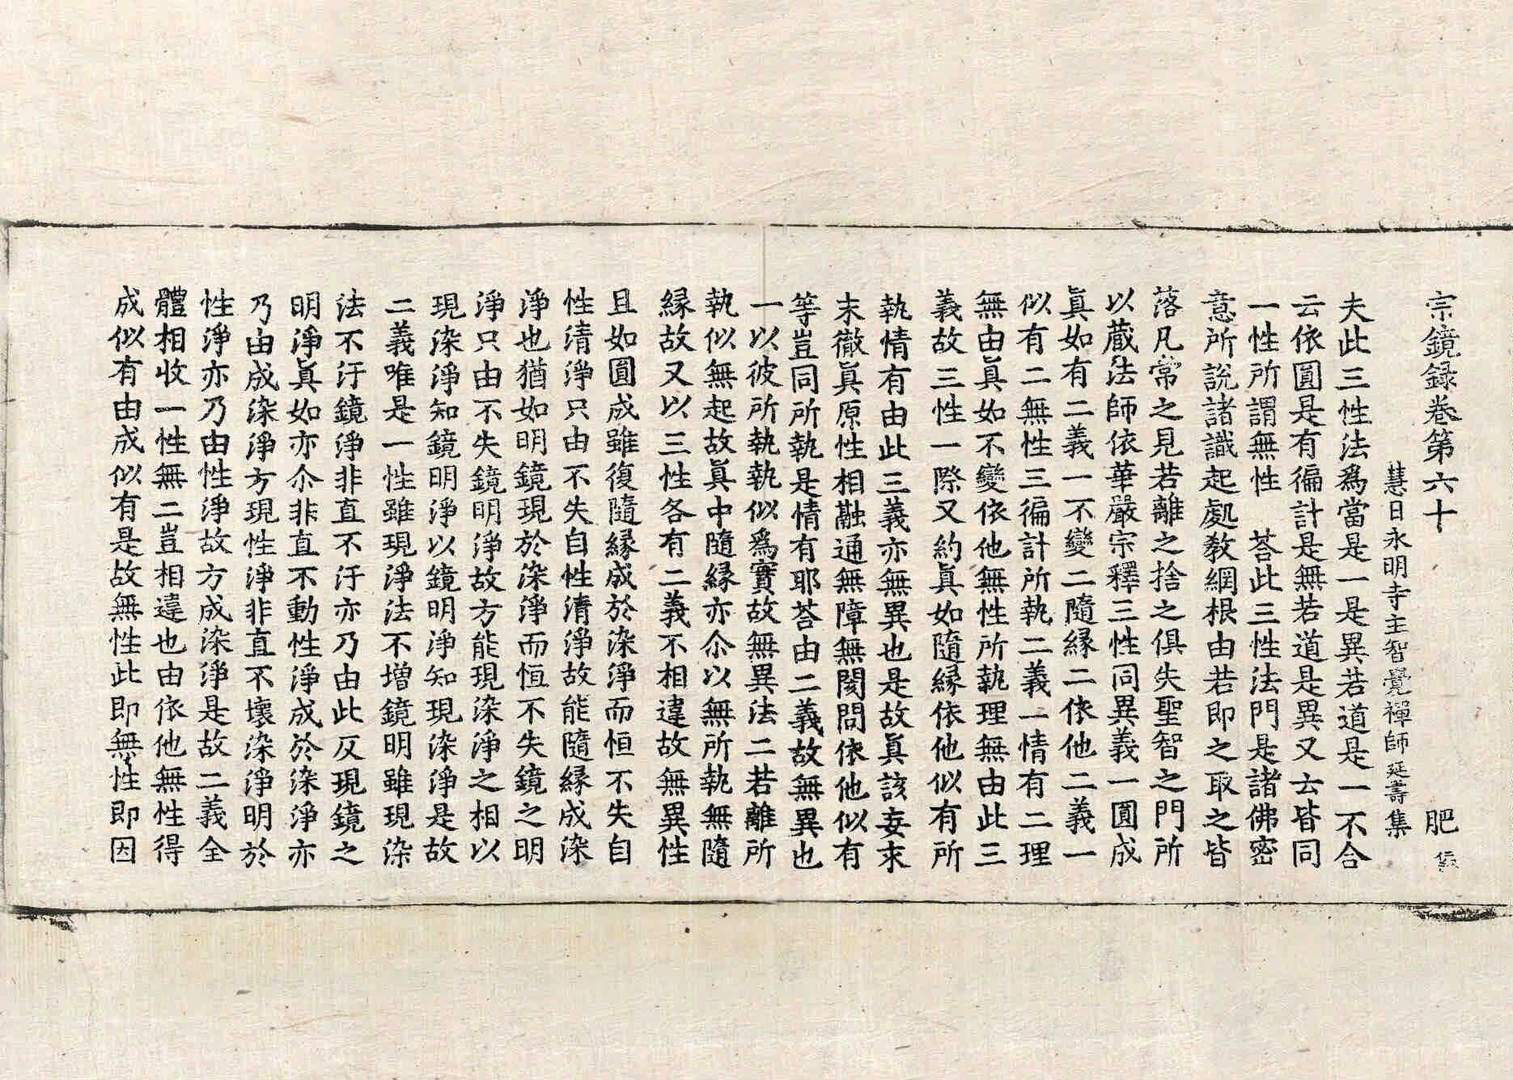 宗鏡録卷第六十 肥
慧日永明寺主智覺禪師延壽集
夫此三性法爲當是一是異若道是一不合
云依圓是有徧計是無若道是異又云皆同
一性所謂無性 荅此三性法門是諸佛密
意所說諸識起處教網根由若即之取之皆
落凡常之見若離之捨之俱失聖智之門所
以藏法師依華嚴宗釋三性同異義一圓成
眞如有二義一不變二隨緣二依他二義一
似有二無性三徧計所執二義一情有二理
無由眞如不變依他無性所執理無由此三
義故三性一際又約眞如隨緣依他似有所
執情有由此三義亦無異也是故眞該妄末
末徹眞原性相融通無障無閡問依他似有
等豈同所執是情有耶荅由二義故無異也
一以彼所執執似爲實故無異法二若離所
執似無起故眞中隨緣亦尒以無所執無隨
緣故又以三性各有二義不相違故無異性
且如圓成雖復隨緣成於染淨而恒不失自
性清淨只由不失自性清淨故能隨緣成染
淨也猶如明鏡現於染淨而恒不失鏡之明
淨只由不失鏡明淨故方能現染淨之相以
現染淨知鏡明淨以鏡明淨知現染淨是故
二義唯是一性雖現淨法不增鏡明雖現染
法不汙鏡淨非直不汙亦乃由此反現鏡之
明淨眞如亦尒非直不動性淨成於染淨亦
乃由成染淨方現性淨非直不壞染淨明於
性淨亦乃由性淨故方成染淨是故二義全
體相收一性無二豈相違也由依他無性得
成似有由成似有是故無性此即無性即因